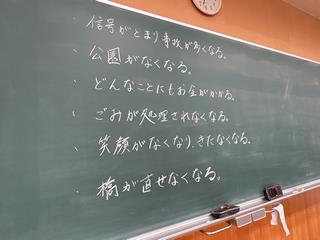 ・信号がとまり事故が多くなる。
・公園がなくなる。
・どんなことにもお金がかかる。
・ごみが処理されなくなる。
・笑顔がなくなり、きたなくなる。
・橋が直せなくなる。